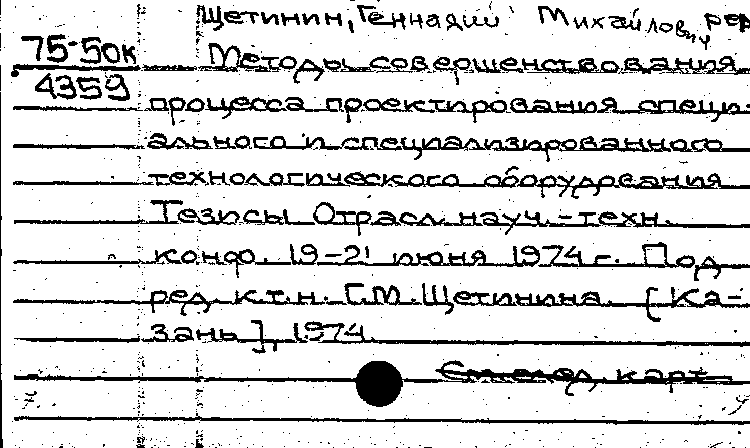 Щетинин, Геннадий Михайлович, ред
75-50к
Методы совершенствования
4359
процесса проектирования специ-
ального и специализированного
технологического оборудования
Тезисы Отрасл. науч.-техн.
конф. 19-21 июня 1974 г. Под
ред. к.т.н. Г.М. Щетинина. [Ка-
зань], 1974.
карт
7.